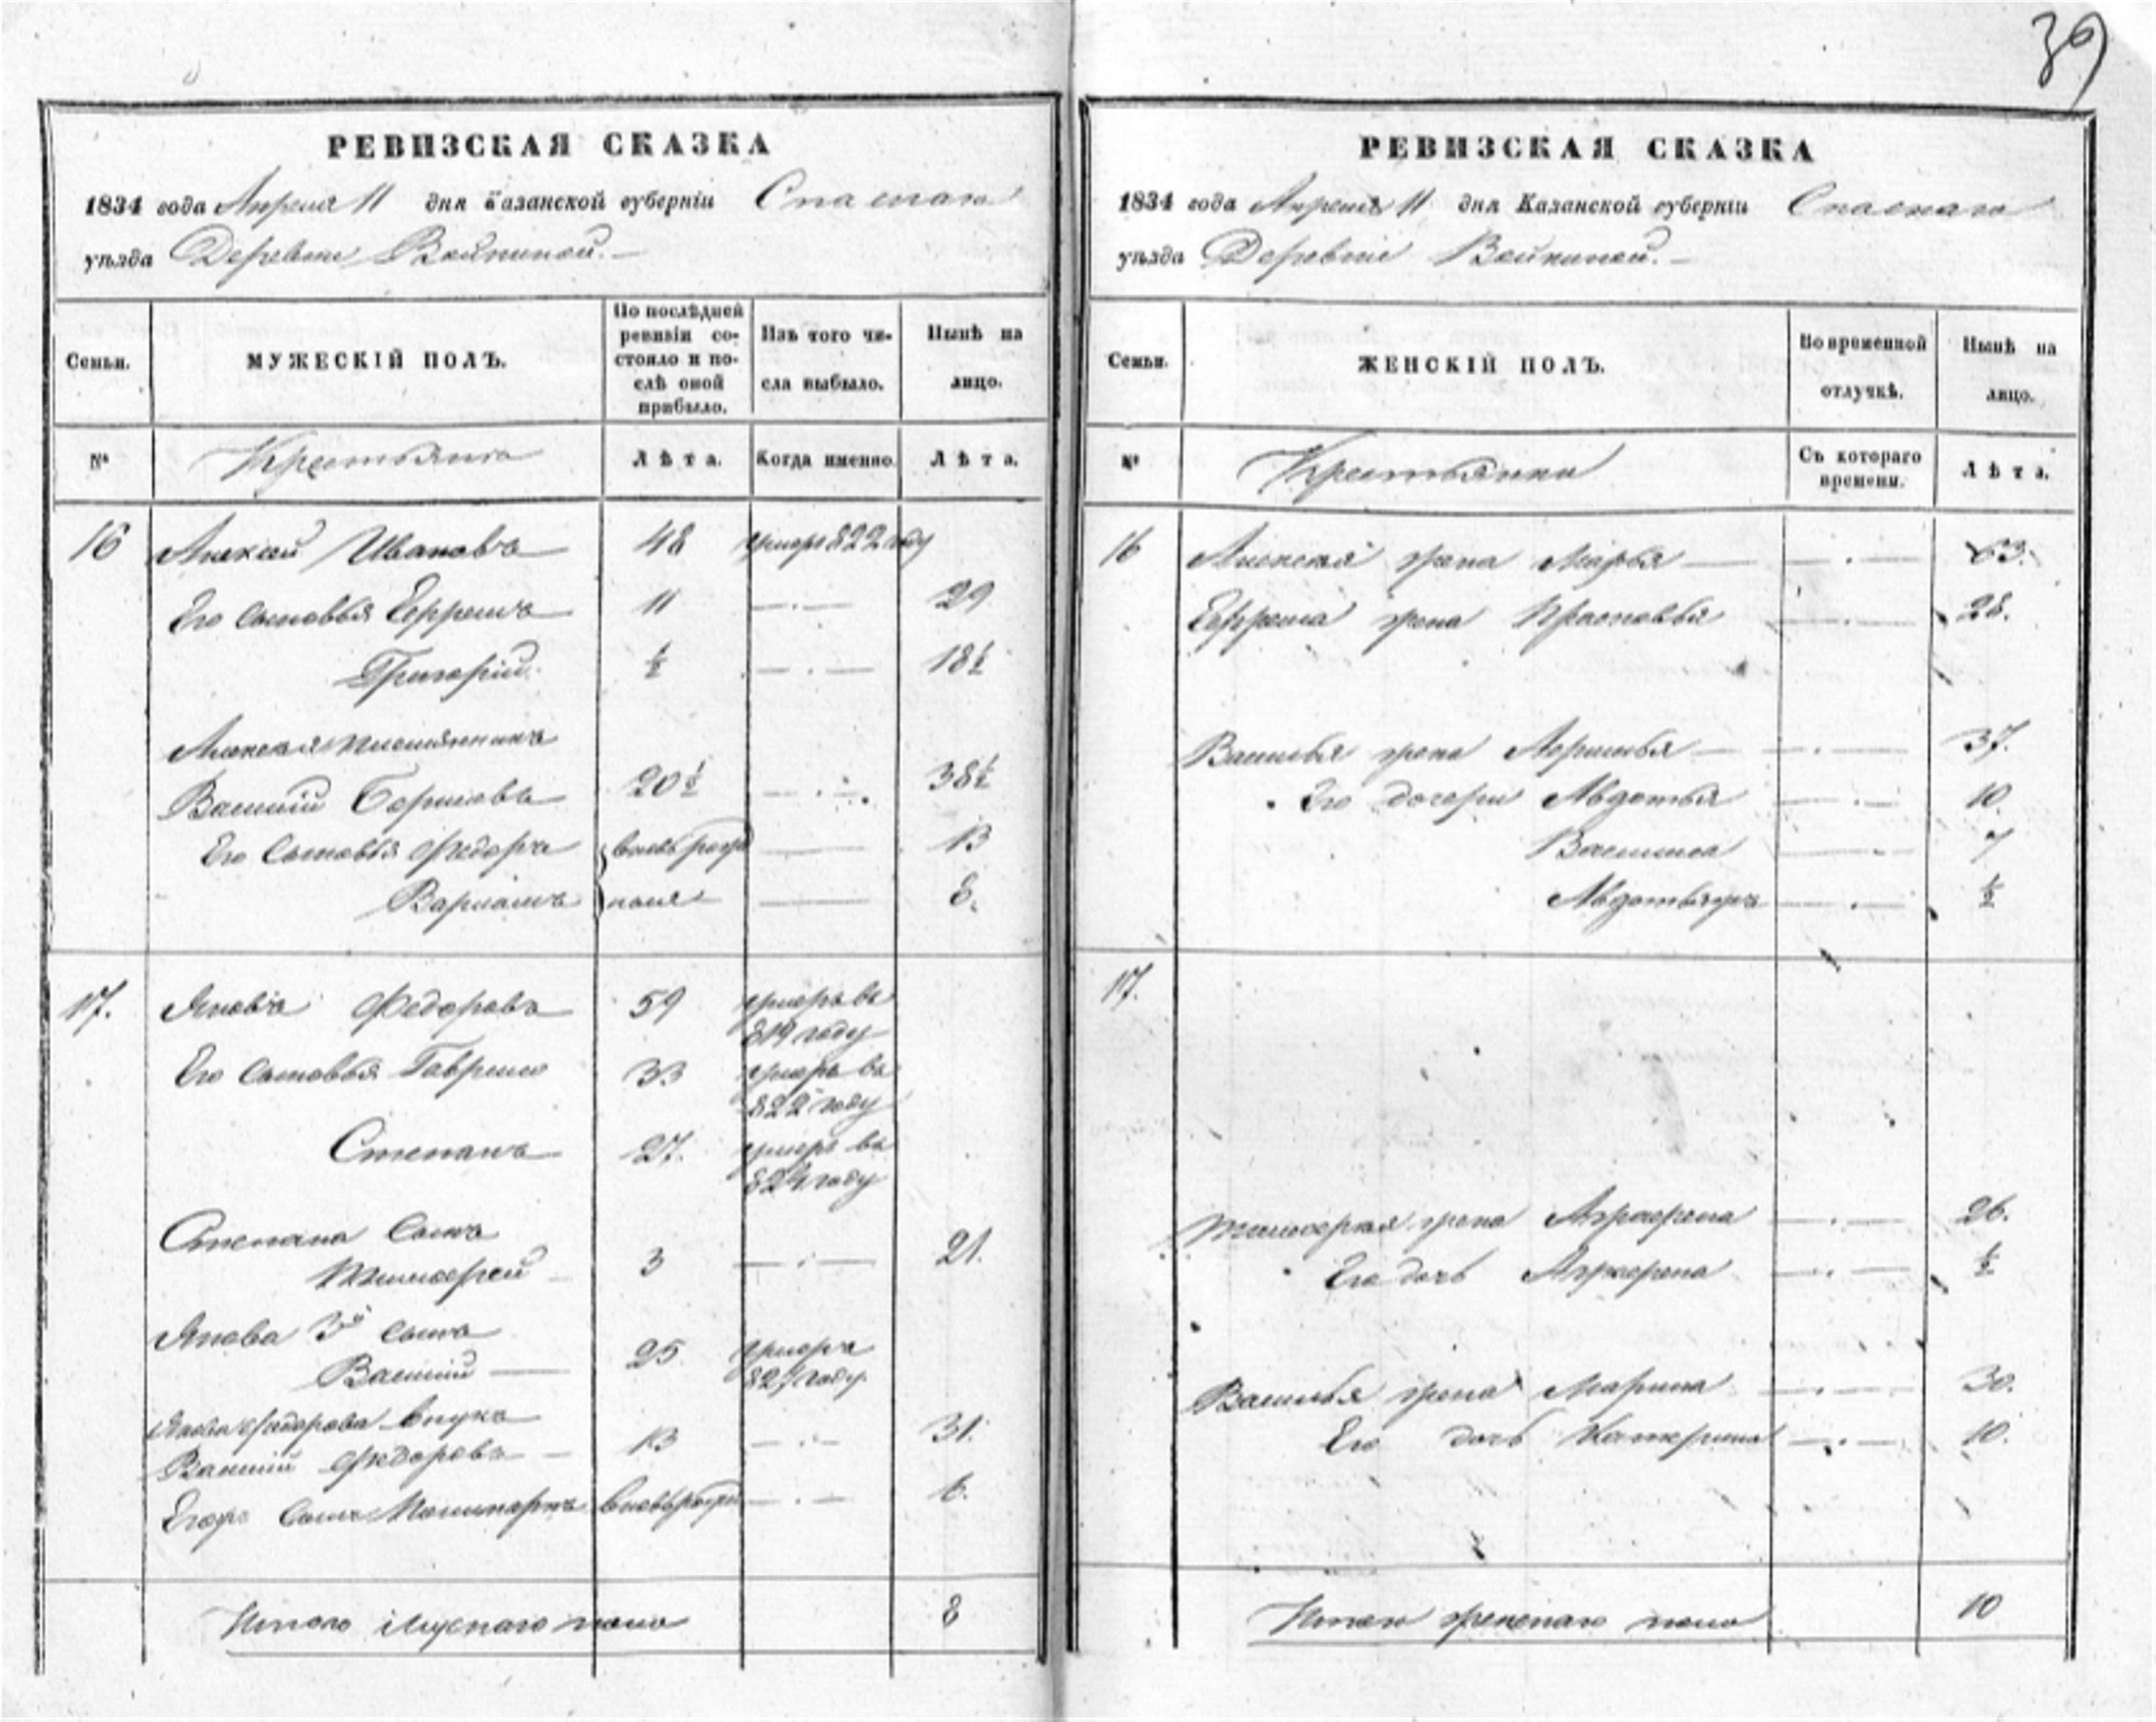 39
РЕВИЗСКАЯ СКАЗКА
1834 года Апреля 11 дня Казанской губерніи Спаскаго
уѣзда Деревни Войкиной.
Семьи.
МУЖЕСКІЙ ПОЛЪ.
По послѣдней ревизіи состояло и послѣ оной прибыло.
Изъ того числа выбыло.
Нынѣ на лицо.
№
Крестьяне
Лѣта.
Когда именно.
Лѣта.
16 Алексей Ивановъ 48 умеръ 822 году
Его сыновья Ефремъ 11 29
Григорій ½ 18½
Алексея племянникъ
Василій Борисовъ 20½ 38½
Его сыновья Федоръ вновь рож 13
Варламъ 8.
17. Яковъ Федоровъ 59 умеръ въ
819 году
Его сыновья Гаврило 33 умеръ въ
822 году
Степанъ 27. умеръ въ
824 году
Степана сынъ
Тимофей 3 21.
Якова 3й сынъ
Василій 25 умеръ
827 году.
Якова Федорова внукъ
Василій Федоровъ 13 31.
Егоръ сынъ вновь рож 6.
Итого мужскаго пола 8
РЕВИЗСКАЯ СКАЗКА
1834 года Апреля 11 дня Казанской губерніи Спаскаго
уѣзда Деревни Войкиной.
Семьи.
ЖЕНСКІЙ ПОЛЪ.
Во временной отлучкѣ.
Нынѣ на лицо.
№
Крестьянки
Съ котораго времени.
Лѣта.
16 Алексея жена Марья 63.
Ефрема жена Прасковья 28.
Василья жена 37.
Его дочери Авдотья 10.
Василиса 7
Авдотья ½
17.
Тимофея жена Аграфена 26.
Его дочь Аграфена ½
Василья жена Марина 30.
Его дочь Катерина 10.
Итого женскаго пола 10